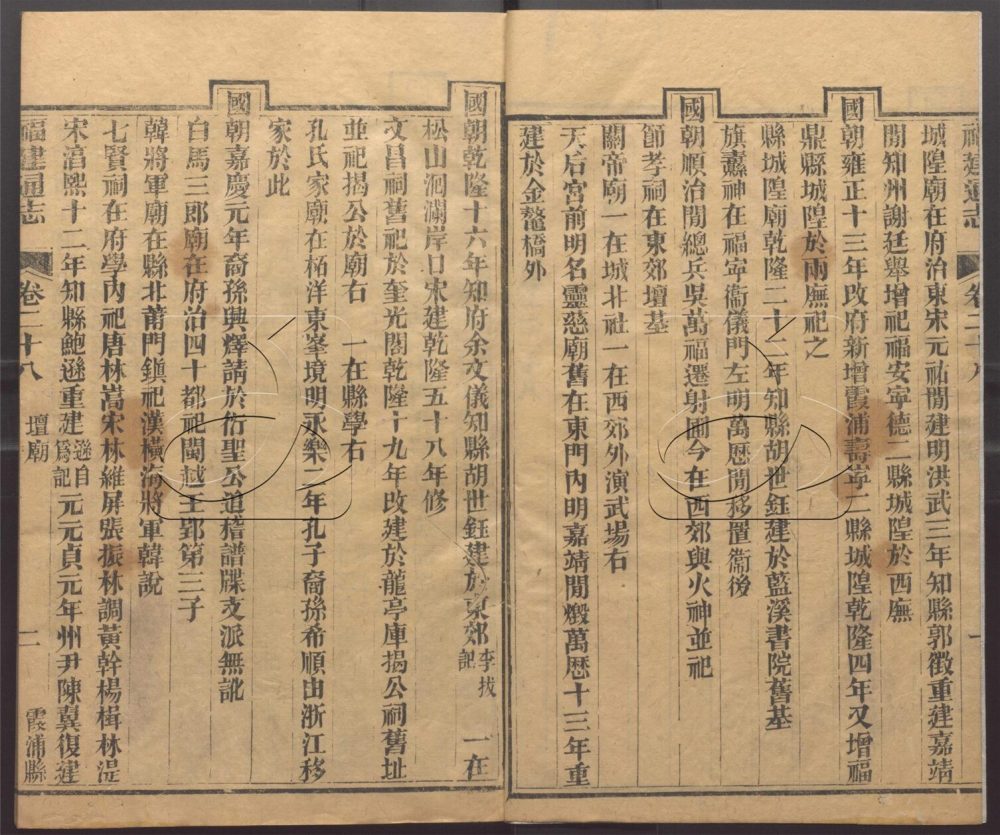 福建通志
卷二十八
一
城隍廟在府治東宋元祐間建明洪武三年知縣郭徵重建嘉靖
間知州謝廷舉增祀福安寧德二縣城隍於西廡
國朝雍正十三年改府新增霞浦壽寧二縣城隍乾隆四年又增福
鼎縣城隍於兩廡祀之
縣城隍廟乾隆二十二年知縣胡世鈺建於藍溪書院舊基
旗纛神在福寧衞儀門左明萬歷間移置衞後
國朝順治間總兵吳萬福遷射圃今在西郊與火神並祀
節孝祠在東郊壇基
關帝廟一在城北社一在西郊外演武場右
天后宮前明名靈慈廟舊在東門內明嘉靖間燬萬歷十三年重
建於金鰲橋外
國朝乾隆十六年知府余文儀知縣胡世鈺建於東郊李拔記 一在
松山洄瀾岸口宋建乾隆五十八年修
文昌祠舊祀於奎光閣乾隆十九年改建於龍亭庫揭公祠舊址
並祀揭公於廟右 一在縣學右
孔氏家廟在柘洋東峯境明永樂二年孔子裔孫希順由浙江移
家於此
國朝嘉慶元年裔孫興燡請於衍聖公追稽譜牒支派無訛
白馬三郎廟在府治四十都祀閩越王郢第三子
韓將軍廟在縣北莆門鎮祀漢橫海將軍韓說
七賢祠在府學內祀唐林嵩宋林維屏張振林調黃幹楊楫林湜
宋淳熙十二年知縣鮑遜重建遜自爲記元元貞元年州尹陳翼復建
福建通志
卷二十八
壇廟
二
霞浦縣